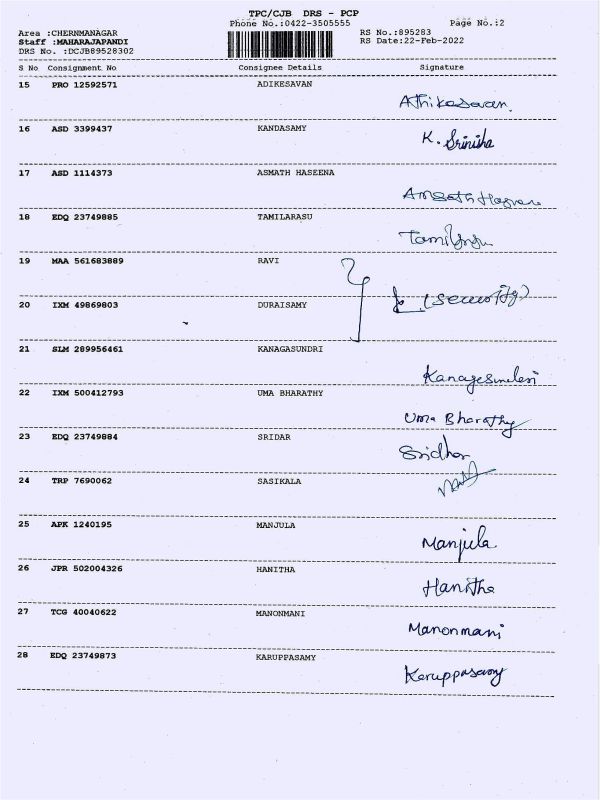 TPC/CJB DRS - PCP
Phone No.:0422-3505555
Page No.:2
Area :CHERNMANAGAR
RS No.:895283
Staff :MAHARAJAPANDI
RS Date:22-Feb-2022
DRS No. :DCJB89528302
S No Consignment No Consignee Details Signature
15 PRO 12592571 ADIKESAVAN
Athikesavan.
16 ASD 3399437 KANDASAMY
K. Srinisha
17 ASD 1114373 ASMATH HASEENA
18 EDQ 23749885 TAMILARASU
19 MAA 561683889 RAVI
20 IXM 49869803 DURAISAMY
(security)
21 SLM 289956461 KANAGASUNDRI
22 IXM 500412793 UMA BHARATHY
Uma Bharathy
23 EDQ 23749884 SRIDAR
Sridhar
24 TRP 7690062 SASIKALA
25 APK 1240195 MANJULA
Manjula
26 JPR 502004326 HANITHA
Hanitha
27 TCG 40040622 MANONMANI
Manonmani
28 EDQ 23749873 KARUPPASAMY
Karuppasamy